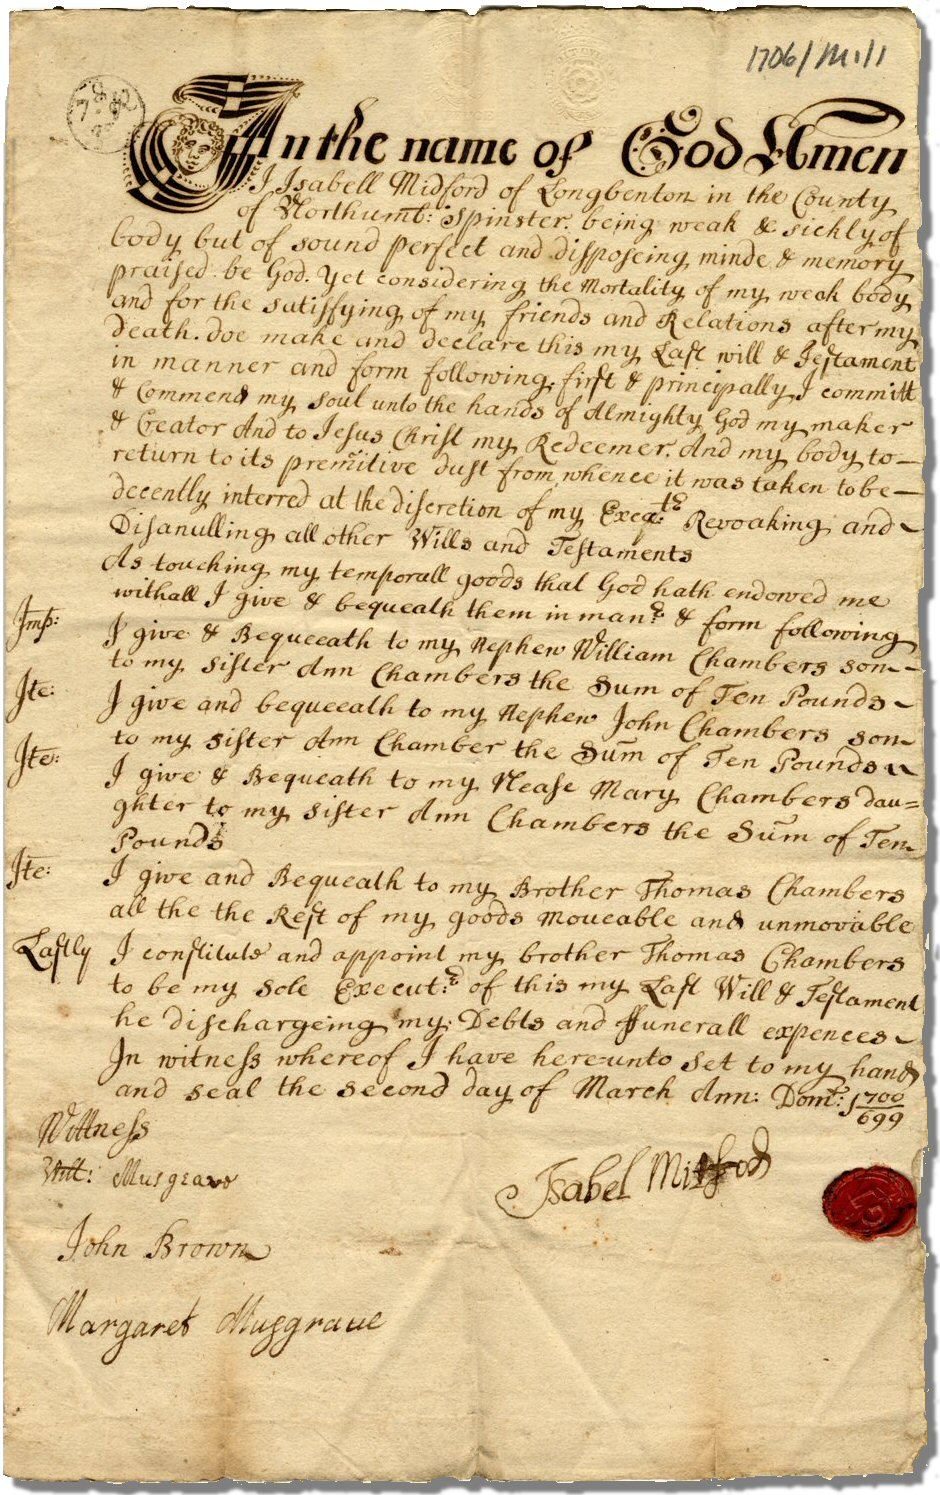 1706/M11/1
In the name of God Amen
I Isabell Midford of Longbenton in the County
of Northumb: Spinster. being weak & sickly of
body but of sound perfect and disposeing minde & memory
praised be God. Yet considering the Mortality of my weak body
and for the satissfying of my friends and Relations after my
Death. doe make and declare this my Last will & Testament
in manner and form following. first & principally I committ
& Commend my soul unto the hands of Almighty God my maker
& Creator And to Jesus Christ my Redeemer. And my body to
return to its premitive dust from whence it was taken to be
decently interred at the discretion of my Exeq:ts Revoaking and
Disanulling all other Wills and Testaments
As touching my temporall goods that God hath endowed me
withall I give & bequeath them in man:r & form following
Imp: I give & Bequeeath to my Nephew William Chambers son
to my sister Ann Chambers the Sum of Ten Pounds
Ite: I give and bequeeath to my Nephew John Chambers son
to my sister Ann Chamber the Sum of Ten Pounds
Ite: I give & Bequeath to my Nease Mary Chambers dau=
ghter to my sister Ann Chambers the Sum of Ten
Pounds
Ite: I give and Bequeath to my Brother Thomas Chambers
all the the Rest of my goods moveable and unmovable
Lastly I constitute and appoint my brother Thomas Chambers
to be my sole Execut:r of this my Last Will & Testament
he dischargeing my Debts and Funerall expences
In witness whereof I have here=unto set to my hand
and seal the second day of March Ann: Dom: 1700/699
Wittness
Will: Musgrave
Isabel Midford
John Brown
Margaret Musgrave